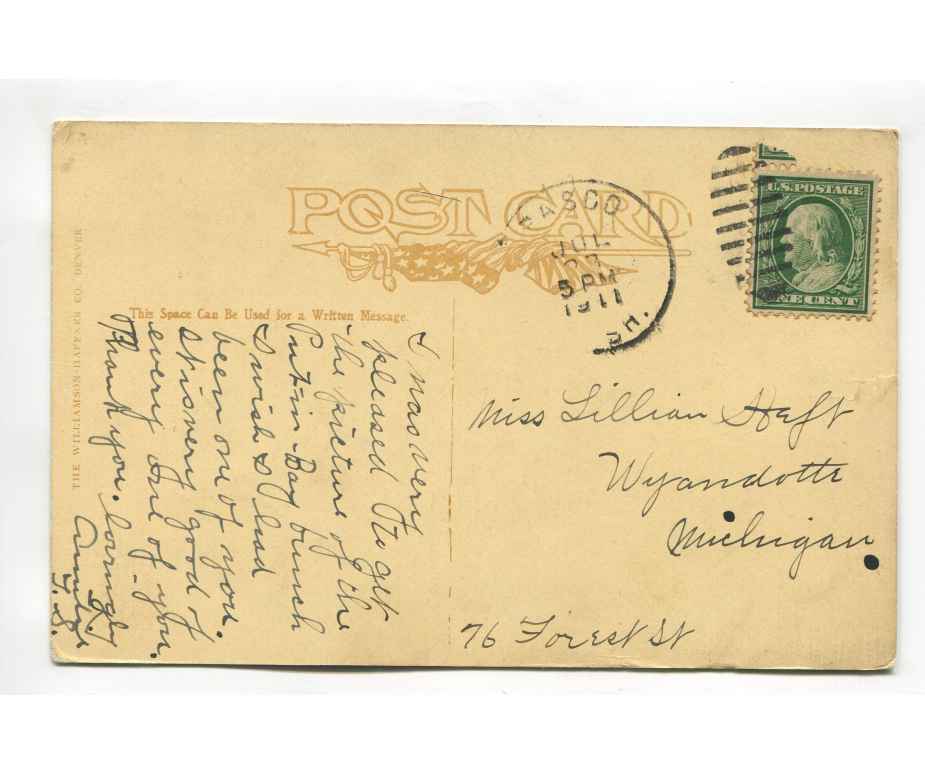 POST CARD
U.S. POSTAGE
ONE CENT
WASCO
JUL
5 PM
1911
SH.
This Space Can Be Used for a Written Message.
THE WILLIAMSON-HAFFNER CO. DENVER
I was very
pleased to get
the picture of the
Put-in-Bay bunch
I wish I had
been one of you.
It is very good of
every one of you.
Thank you. Lovingly
Miss Lillian Heft
Wyandotte
Michigan.
76 Forest St